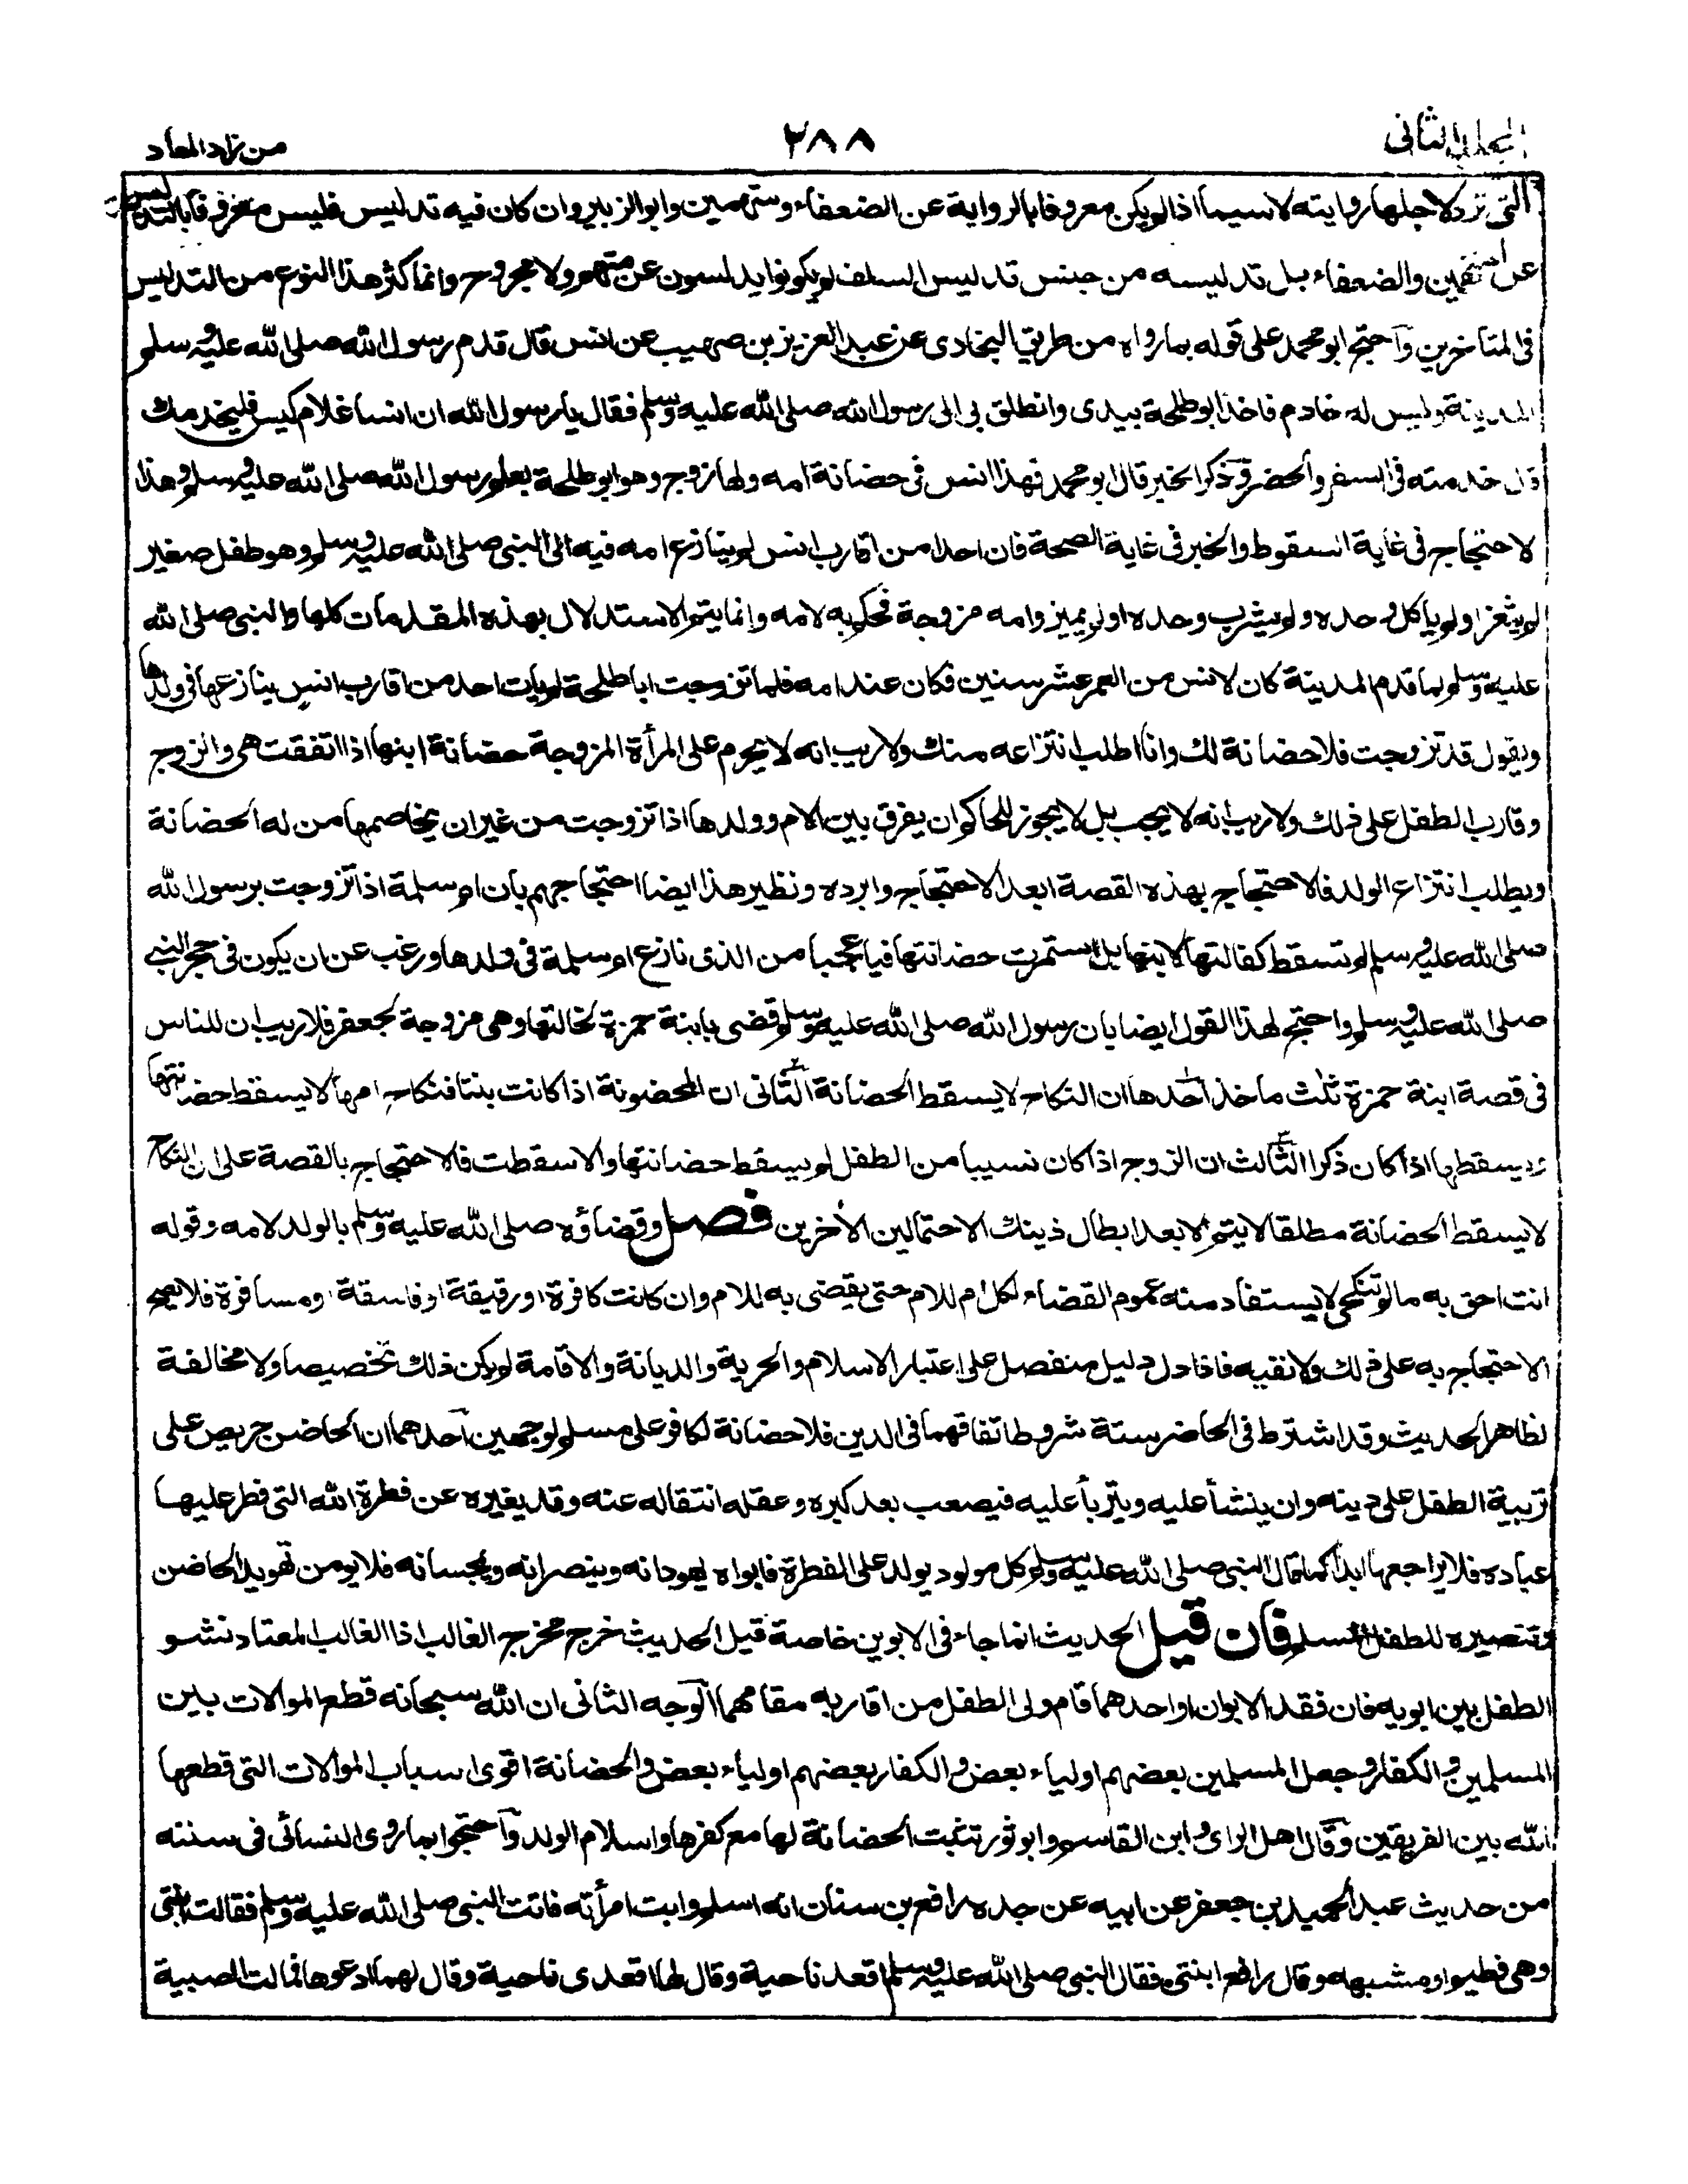 المجلد الثانى
٢٨٨
من زاد المعاد
التى ترد لاجلها روايته لاسيما اذا لم يكن معروفا بالرواية عن الضعفاء ومتهمين وابو الزبير وان كان فيه تدليس فليس معروفا بالتدليس
عن المتهمين والضعفاء بل تدليسه من جنس تدليس السلف لم يكونوا يدلسون عن متهم ولا مجروح وانما كثر هذا النوع من التدليس
فى المتاخرين واحتج ابو محمد على قوله بما رواه من طريق البخارى عن عبد العزيز بن صهيب عن انس قال قدم رسول الله صلى الله عليه وسلم
المدينة وليس له خادم فاخذ ابو طلحة بيدى وانطلق بى الى رسول الله صلى الله عليه وسلم فقال يا رسول الله ان انسا غلام كيس فليخدمك
قال خدمته فى السفر والحضر وذكر الخبر قال ابو محمد فهذا انس فى حضانة امه ولها زوج وهو ابو طلحة بعلم رسول الله صلى الله عليه وسلم وهذا
لاحتجاج فى غاية السقوط والخبر فى غاية الصحة فان احدا من اقارب انس لم ينازع امه فيه الى النبى صلى الله عليه وسلم وهو طفل صغير
لم يثغر ولم ياكل وحده ولم يشرب وحده ولم يميز وامه مزوجة فحكم به لامه وانما يتم الاستدلال بهذه المقدمات كلها والنبى صلى الله
عليه وسلم لما قدم المدينة كان لانس من العمر عشر سنين فكان عند امه فلما تزوجت ابا طلحة لم يات احد من اقارب انس ينازعها فى ولدها
ويقول قد تزوجت فلا حضانة لك وانا اطلب انتزاعه منك ولا ريب انه لا يحرم على المرأة المزوجة حضانة ابنها اذا اتفقت هى والزوج
وقارب الطفل على ذلك ولا ريب انه لا يجب بل لا يجوز للحاكم ان يفرق بين الام وولدها اذا تزوجت من غير ان يخاصمها من له الحضانة
ويطلب انتزاع الولد فالاحتجاج بهذه القصة ابعد الاحتجاج وابرده ونظير هذا ايضا احتجاجهم بان ام سلمة اذا تزوجت برسول الله
صلى الله عليه وسلم لم تسقط كفالتها لابنها بل استمرت حضانتها فيا عجبا من الذى نازع ام سلمة فى ولدها ورغب عن ان يكون فى حجر النبى
صلى الله عليه وسلم واحتج لهذا القول ايضا بان رسول الله صلى الله عليه وسلم قضى بابنة حمزة لخالتها وهى مزوجة بجعفر فلا ريب ان للناس
فى قصة ابنة حمزة ثلث ماخذ احدها ان النكاح لا يسقط الحضانة الثانى ان المحضونة اذا كانت بنتا فنكاح امها لا يسقط حضانتها
ويسقطها اذا كان ذكرا الثالث ان الزوج اذا كان نسيبا من الطفل لم يسقط حضانتها والا سقطت فالاحتجاج بالقصة على ان النكاح
لا يسقط الحضانة مطلقا لا يتم الا بعد ابطال ذينك الاحتمالين الأخرين فصل وقضاؤه صلى الله عليه وسلم بالولد لامه وقوله
انت احق به مالم تنكحى لا يستفاد منه عموم القضاء لكل ام للام حتى يقضى به للام وان كانت كافرة او رقيقة او فاسقة او مسافرة فلا يصح
الاحتجاج به على ذلك ولا نفيه فاذا دل دليل منفصل على اعتبار الاسلام والحرية والديانة والاقامة لم يكن ذلك تخصيصا ولا مخالفة
لظاهر الحديث وقد اشترط فى الحاضن ستة شروط اتفاقهما فى الدين فلا حضانة لكافر على مسلم لوجهين احدهما ان الحاضن حريص على
تربية الطفل على دينه وان ينشأ عليه ويتربأ عليه فيصعب بعد كبره وعقله انتقاله عنه وقد يغيره عن فطرة الله التى فطر عليها
عباده فلا يراجعها ابدا كما قال النبى صلى الله عليه وسلم كل مولود يولد على الفطرة فابواه يهودانه وينصرانه ويمجسانه فلا يومن تهويد الحاضن
وتنصيره للطفل المسلم فان قيل الحديث انما جاء فى الابوين خاصة قيل الحديث خرج مخرج الغالب اذا الغالب المعتاد نشو
الطفل بين ابويه فان فقد الابوان او احدهما قام ولى الطفل من اقاربه مقامهما الوجه الثانى ان الله سبحانه قطع الموالات بين
المسلمين والكفار وجعل المسلمين بعضهم اولياء بعض والكفار بعضهم اولياء بعض والحضانة اقوى اسباب الموالات التى قطعها
الله بين الفريقين وقال اهل الراى وابن القاسم وابو ثور تثبت الحضانة لها مع كفرها واسلام الولد واحتجوا بما روى النسائى فى سننه
من حديث عبد الحميد بن جعفر عن ابيه عن جده رافع بن سنان انه اسلم وابت امرأته فاتت النبى صلى الله عليه وسلم فقالت ابنتى
وهى فطيم او مشبهه وقال رافع ابنتى فقال النبى صلى الله عليه وسلم اقعد ناحية وقال لها اقعدى ناحية وقال لهما ادعوها فمالت الصبية